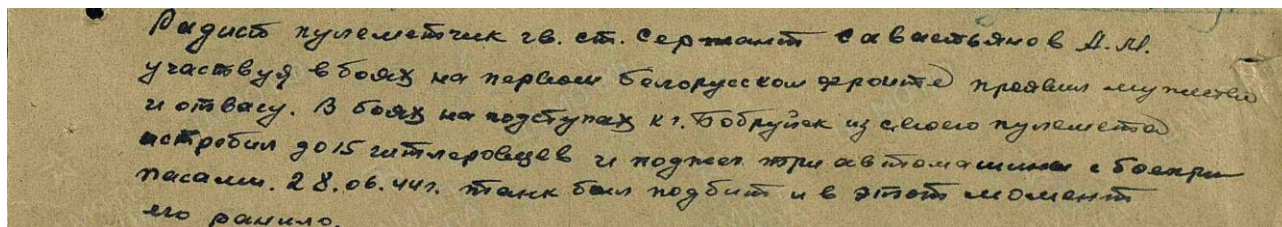 Радист пулеметчик гв. ст. Сержант Савастьянов А.М.
участвуя в боях на первом белорусском фронте проявил мужество
и отвагу. В боях на подступах к г. Бобруйск из своего пулемета
истребил до 15 гитлеровцев и поджег три автомашины с боепри
пасами. 28.06.44г. танк был подбит и в этот момент
его ранило.